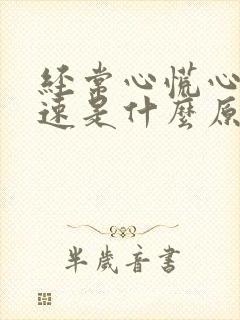 经常心慌心
速是什麼原
半歲音書